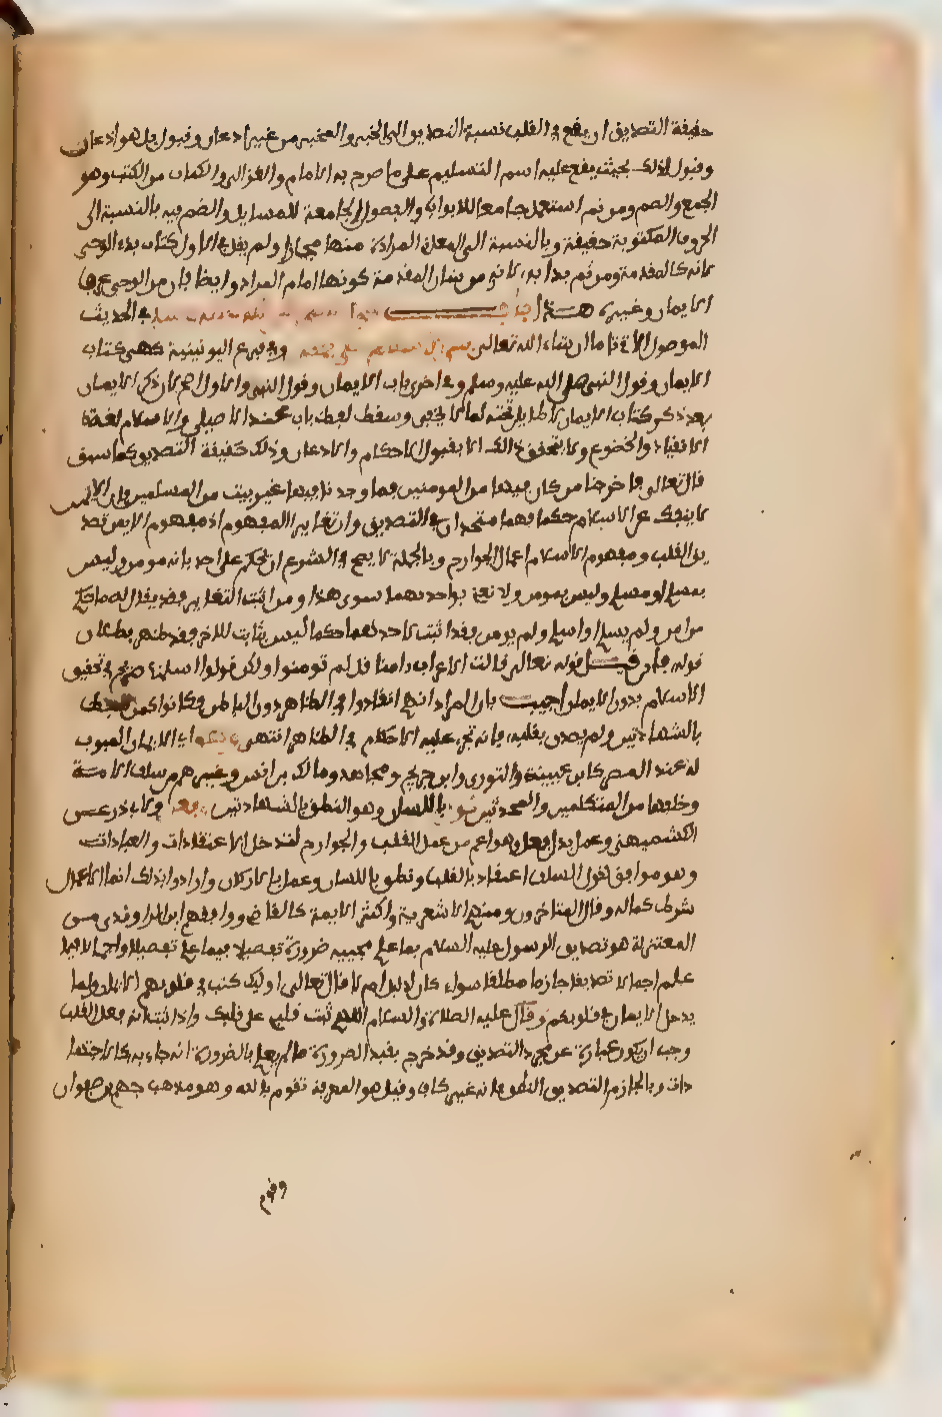 حقيقة التصديق ان يقع في القلب نسبة التصديق الى الخبر والمخبر من غير اذعان وقبول بل هو اذعان
وقبول لذلك بحيث يقع عليه اسم التسليم على ما صرح به الامام والغزالي والكتاب من الكتب وهو
الجمع والضم ومن ثم استعمل جامعا للابواب والفصول الجامعة للمسايل والضم فيه بالنسبة الى
الحروف المكتوبة حقيقة وبالنسبة الى المعاني المرادة منها مجازا ولم يقل في الاول كتاب بدء الوحي
لانه كالمقدمة ومن ثم بدا به لانه من شان المقدمة كونها امام المراد وايضا فان من الوحي عرف
الايمان وغيره هذا الحديث
الموصول الاتي تاما ان شاء الله تعالى وفي فرع اليونينية كهي كتاب
الايمان وقول النبي صلى الله عليه وسلم وفي اخرى باب الايمان وقول النبي والاول اصح لان ذكر الايمان
بعد ذكر كتاب الايمان لا طايل تحته لما لا يخفى وسقط لفظ باب عند الاصيلي والاسلام لغة
الانقياد والخضوع ولا يتحقق ذلك الا بقبول الاحكام والاذعان وذلك حقيقة التصديق كما سبق
قال تعالى فاخرجنا من كان فيها من المومنين فما وجدنا فيها غير بيت من المسلمين فالايمان
لا ينفك عن الاسلام حكما فهما متحدان في التصديق وان تغاير المفهوم اذ مفهوم الايمان تصد
يق القلب ومفهوم الاسلام اعمال الجوارح وبالجملة لا يصح في الشرع ان نحكم على احد بانه مومن وليس
بمسلم او مسلم وليس بمومن ولا نعني بواحديهما سوى هذا ومن اثبت التغاير فقد يقال له ما حكم
من امن ولم يسلم او اسلم ولم يومن فقد اثبت لاحدهما حكما ليس بثابت للاخر فقد ظهر بطلان
قوله فان قيل قوله تعالى قالت الاعراب امنا قل لم تومنوا ولكن قولوا اسلمنا صريح في تحقيق
الاسلام بدون الايمان اجيب بان المراد انهم انقادوا في الظاهر دون الباطن فكانوا كمن تلفظ
بالشهادتين ولم يصدق بقلبه فانه تجري عليه الاحكام في الظاهر انتهى اي الايمان المبوب
له عند المصنف كابن عيينة والثوري وابن جريج ومجاهد ومالك بن انس وغيرهم من سلف الامة
وخلفها من المتكلمين والمحدثين قول باللسان وهو النطق بالشهادتين وفعل ولابي ذر عن
الكشميهني وعمل بدل فعل وهو اعم من عمل القلب والجوارح لتدخل الاعتقادات والعبادات
وهو موافق لقول السلف اعتقاد بالقلب ونطق باللسان وعمل بالاركان وارادوا بذلك انما الاعمال
شرط كماله وقال المتاخرون ومنهم الاشعرية واكثر الايمة كالقاضي ووافقهم ابن الراوندي من
المعتزلة هو تصديق الرسول عليه السلام بما علم مجييه ضرورة تفصيلا فيما علم تفصيلا واجمالا فيما
علم اجمالا تصديقا جازما مطلقا سواء كان لدليل ام لا قال تعالى اوليك كتب في قلوبهم الايمان ولما
يدخل الايمان في قلوبكم وقال عليه الصلاة والسلام اللهم ثبت قلبي على دينك واذا ثبت انه فعل القلب
وجب ان يكون عبارة عن مجرد التصديق وقد خرج بقيد الضرورة ما لم يعلم بالضرورة انه جاء به كالاجتها
ديات وبالجازم التصديق الظني فانه غير كاف وقيل هو المعرفة فقوم بالله وهو مذهب جهم بن صفوان
وقوم